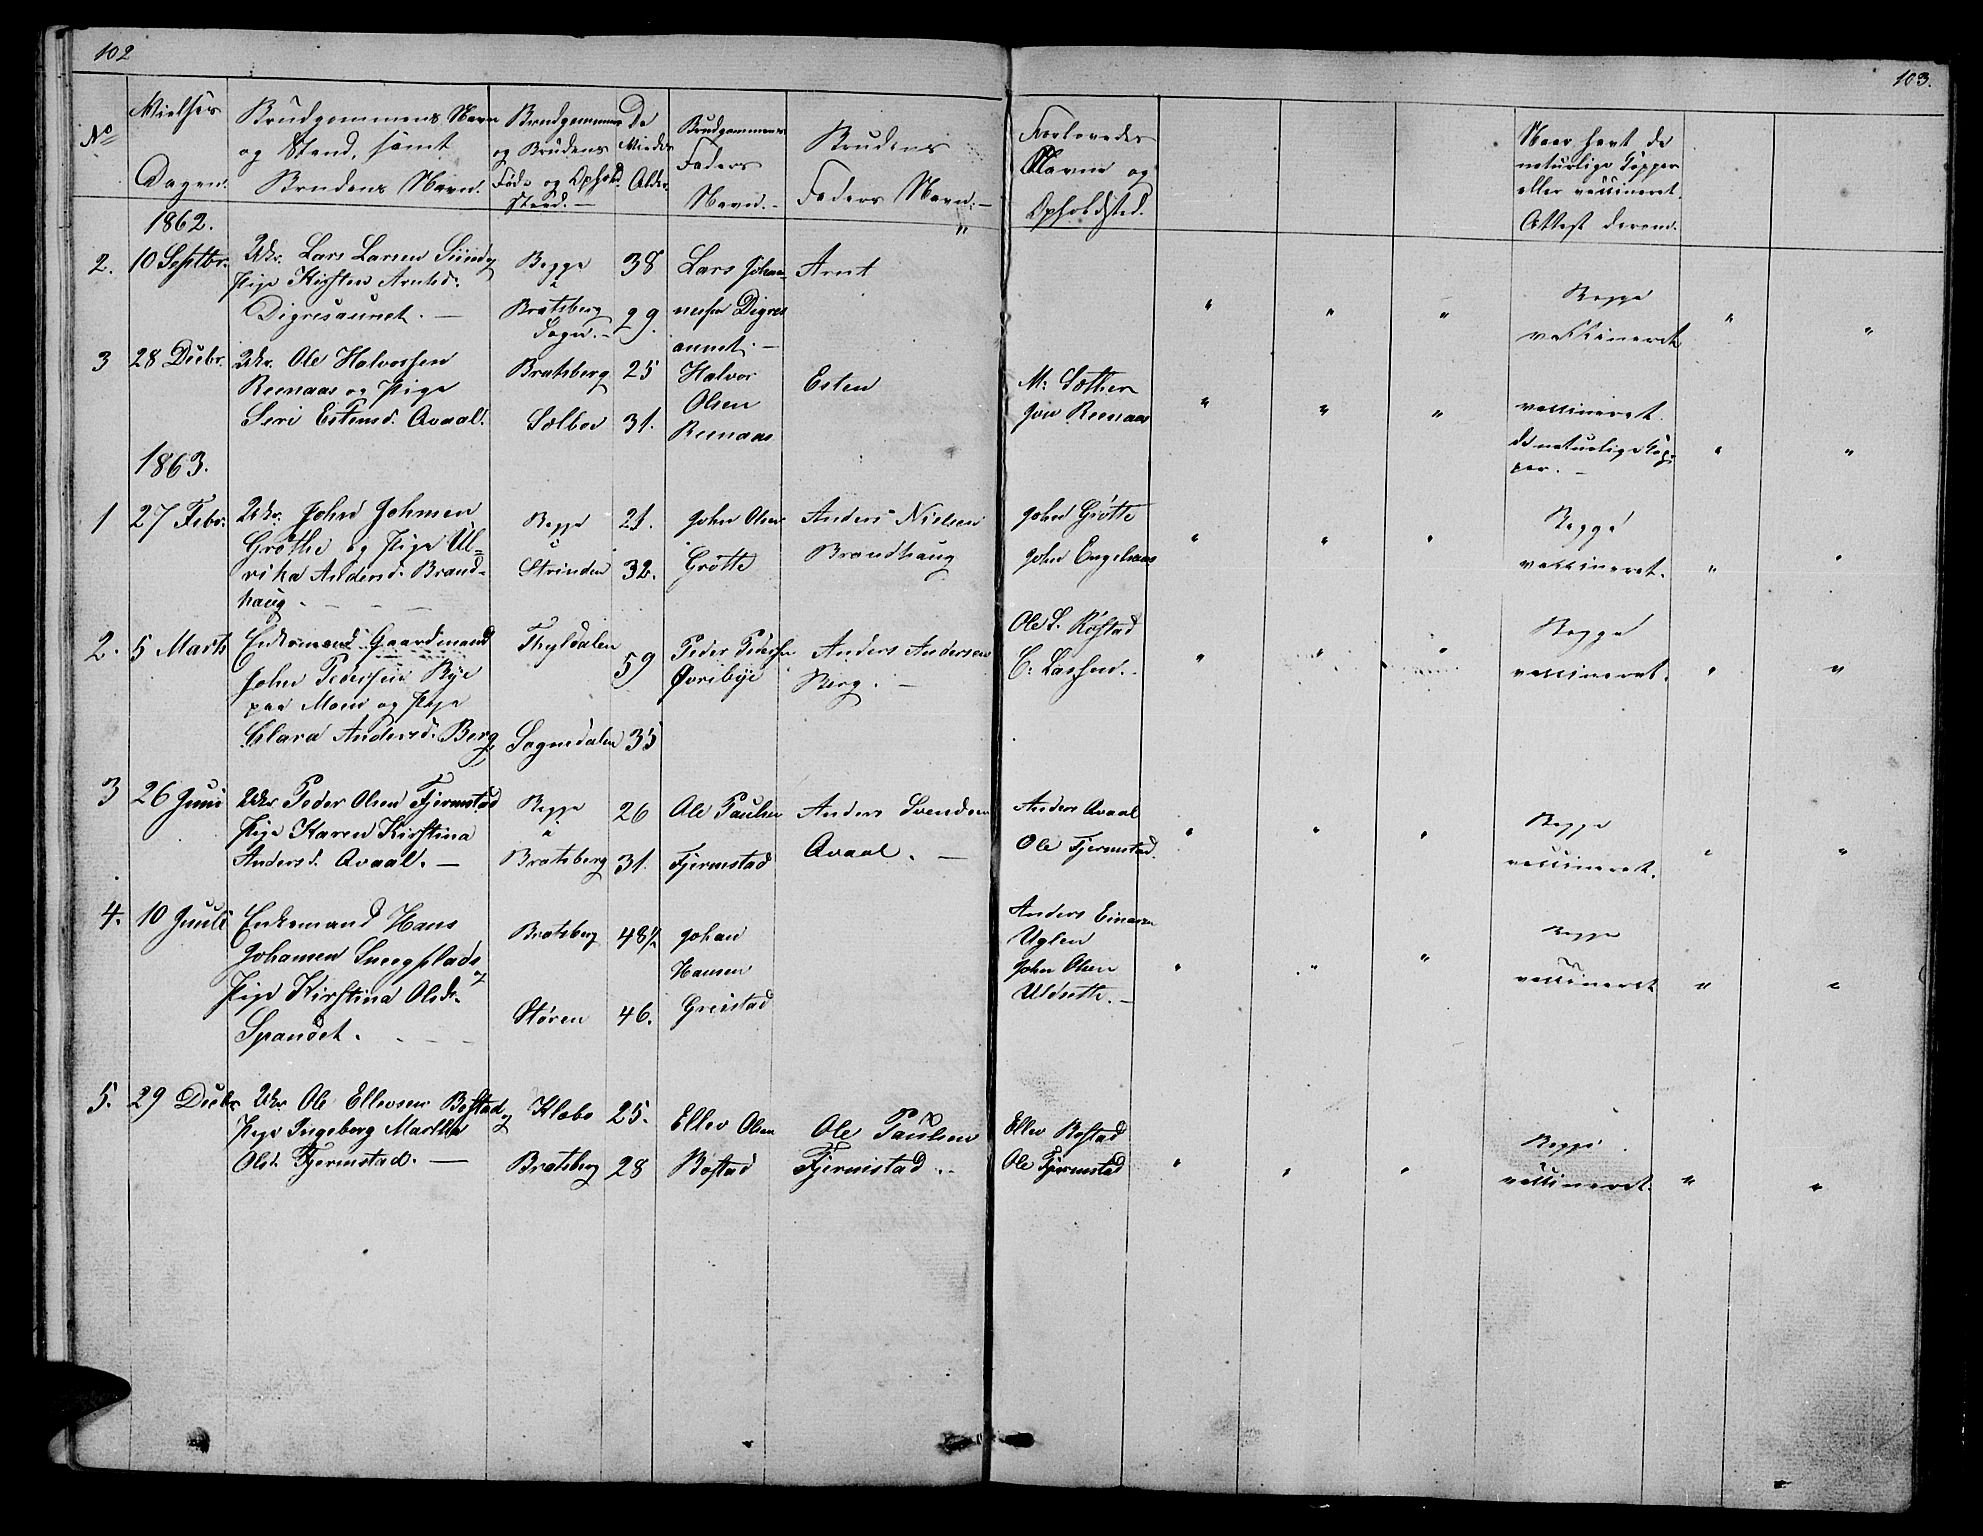 102
103.
No
Vielses
Dagen.
Brudgommens Navn
og Stand, samt
Brudens Navn.
Brudgommens
og Brudens
Føde og Ophold
Sted. —
De
Viedes
Alder.
Brudgommens
Faders
Navn. —
Brudens
Faders Navn. —
Forlovedes
Navne og
Opholdsted.
Naar havt de
naturlige Kopper
eller vaccineret.
Attest derom.
1862.
2. 10 Septbr.
Ukr. Lars Larsen
Pige Kirsten Arntsd.
Digresaunet. —
Begge
Bratsberg
Sogn. —
38
29.
Lars Johan-
nesen Digres
aunet. —
Arnt
Begge
vakkineret
3 28 Decbr.
Ukr. Ole Halvorsen
Reenaas og Pige
Seri Estensd. Avaal.
Bratsberg
Selbov
25
31.
Halvor
Olsen
Reenaas
Esten
M. Sæther
Jon Reenaas
vaccineret.
de naturlige Kop-
per. —
1863.
1 27 Febr.
Ukr. John Johnsen
Grøtte og Pige Ul-
rika Andersd. Brand-
haug. — — —
Begge
Strinden
21.
32.
John Olsen
Grøtte
Anders Nielsen
Brandhaug
John Grøtte
John Engelsaas
Begge
vaccineret.
2. 5 Marts
Enkemand Gaardmand
John Pedersen Bye
paa Moen og Pige
Clara Andersd. Berg
Thyldalen
Sognedalen
59
35
Peder Pedersen
Øvribye
Anders Andersen
Berg. —
Ole L. Røstad
C. Lassen.
Begge
vaccineret.
3 26 Juni
Ukr Peder Olsen Fjermstad
Pige Karen Kirstina
Andersd. Avaal. —
Begge
Bratsberg
26
31.
Ole Paulsen
Fjermstad
Anders Svendsen
Avaal. —
Anders Avaal
Ole Fjermstad.
Begge
vaccineret.
4. 10 Juuli
Enkemand Hans
Johansen Sneegplads
Pige Kirstina Olsdr.
Spandet. — — —
Bratsberg
Støren
48½
46.
Johan
Hansen
Greistad
Anders Einarsen
Uglen
John Olsen
Uldseth. —
Begge
vaccineret
5. 29 Decbr
Ukr Ole Ellevsen Bostad
Pige Ingeborg Martha
Olsd. Fjermstad. —
Klæbo
Bratsberg
25.
28
Ellev Olsen
Bostad
Ole Paulsen
Fjermistad. —
Ellev Bostad
Ole Fjermstad
Begge
vaccineret.